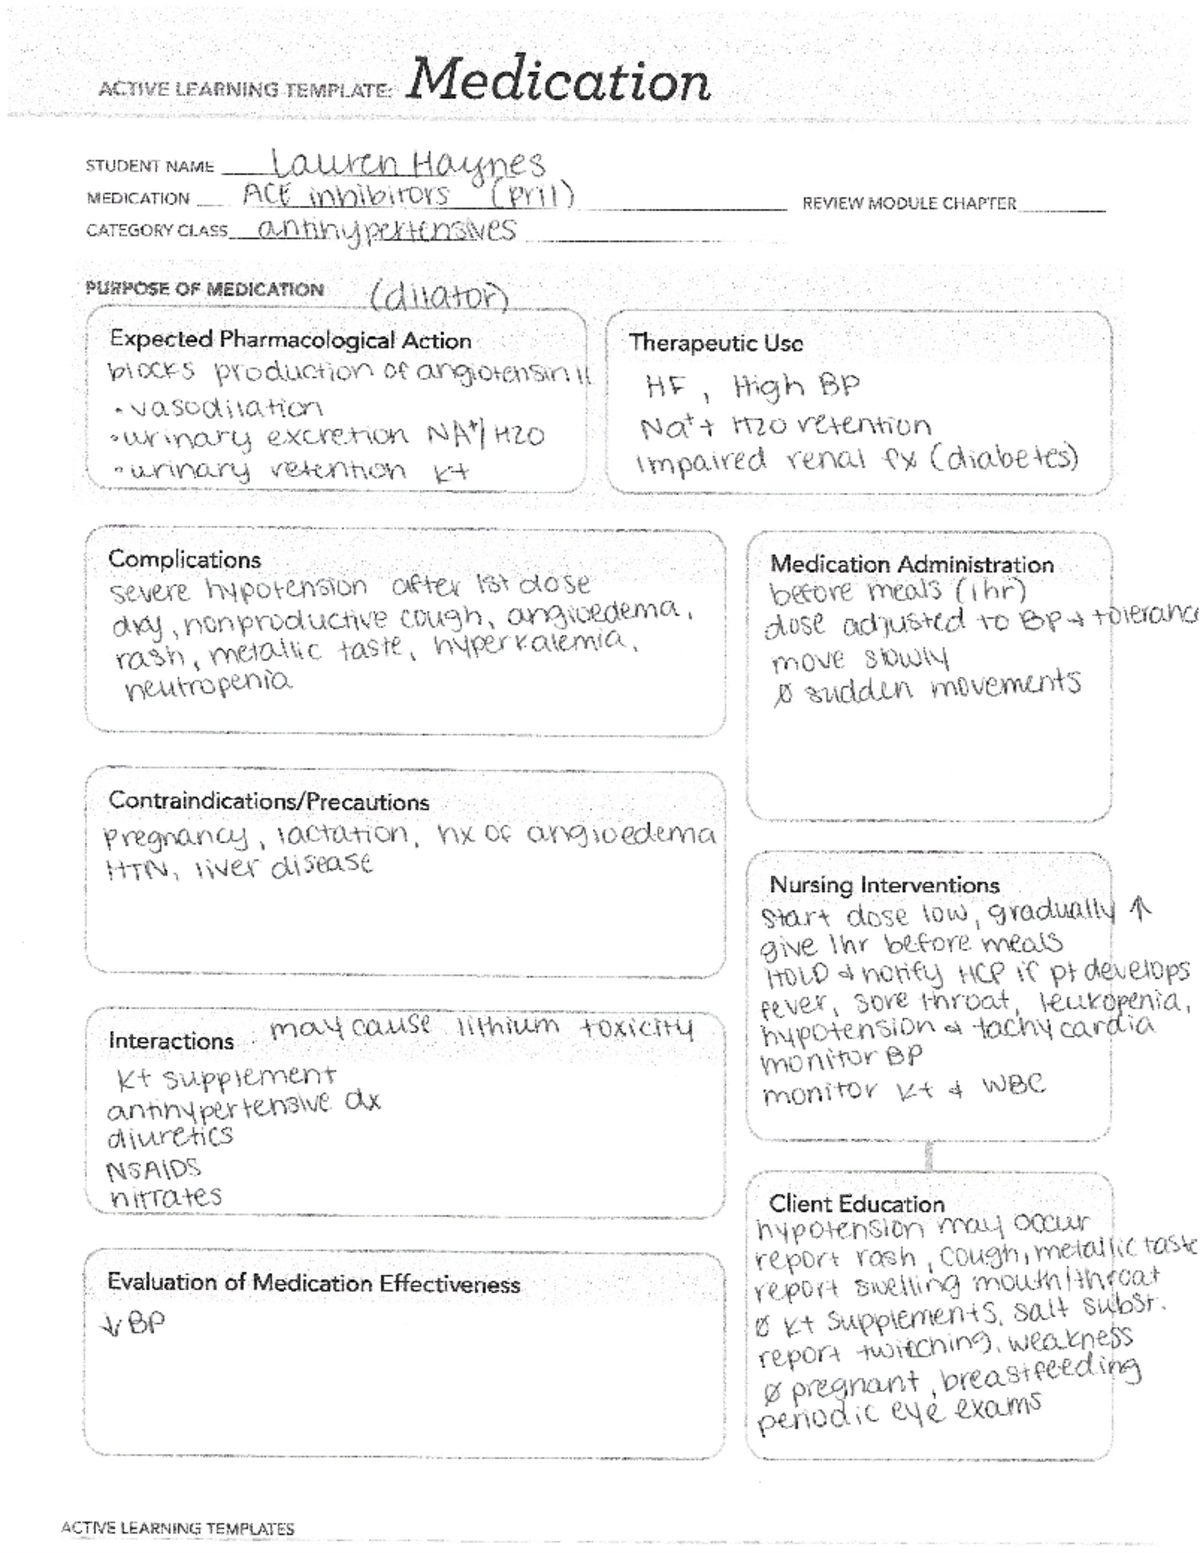 ACTIVE LEARNING TEMPLATE: Medication
STUDENT NAME Lauren Haynes
MEDICATION ACE inhibitors (pril)
REVIEW MODULE CHAPTER
CATEGORY CLASS antihypertensives
PURPOSE OF MEDICATION (dilator)
Expected Pharmacological Action
blocks production of angiotensin II
• vasodilation
• urinary excretion NA+/H2O
• urinary retention K+
Therapeutic Use
HF, High BP
Na+ + H2O retention
impaired renal fx (diabetes)
Complications
severe hypotension after 1st dose
dry, nonproductive cough, angioedema,
rash, metallic taste, hyperkalemia,
neutropenia
Medication Administration
before meals (1hr)
dose adjusted to BP + tolerance
move slowly
Ø sudden movements
Contraindications/Precautions
pregnancy, lactation, hx of angioedema
HTN, liver disease
Nursing Interventions
start dose low, gradually ↑
give 1hr before meals
HOLD + notify HCP if pt develops
fever, sore throat, leukopenia,
hypotension + tachycardia
monitor BP
monitor K+ + WBC
Interactions · may cause lithium toxicity
K+ supplement
antihypertensive dx
diuretics
NSAIDS
nitrates
Client Education
hypotension may occur
report rash, cough, metallic taste
report swelling mouth/throat
Ø K+ supplements, salt subst.
report twitching, weakness
Ø pregnant, breastfeeding
periodic eye exams
Evaluation of Medication Effectiveness
↓ BP
ACTIVE LEARNING TEMPLATES